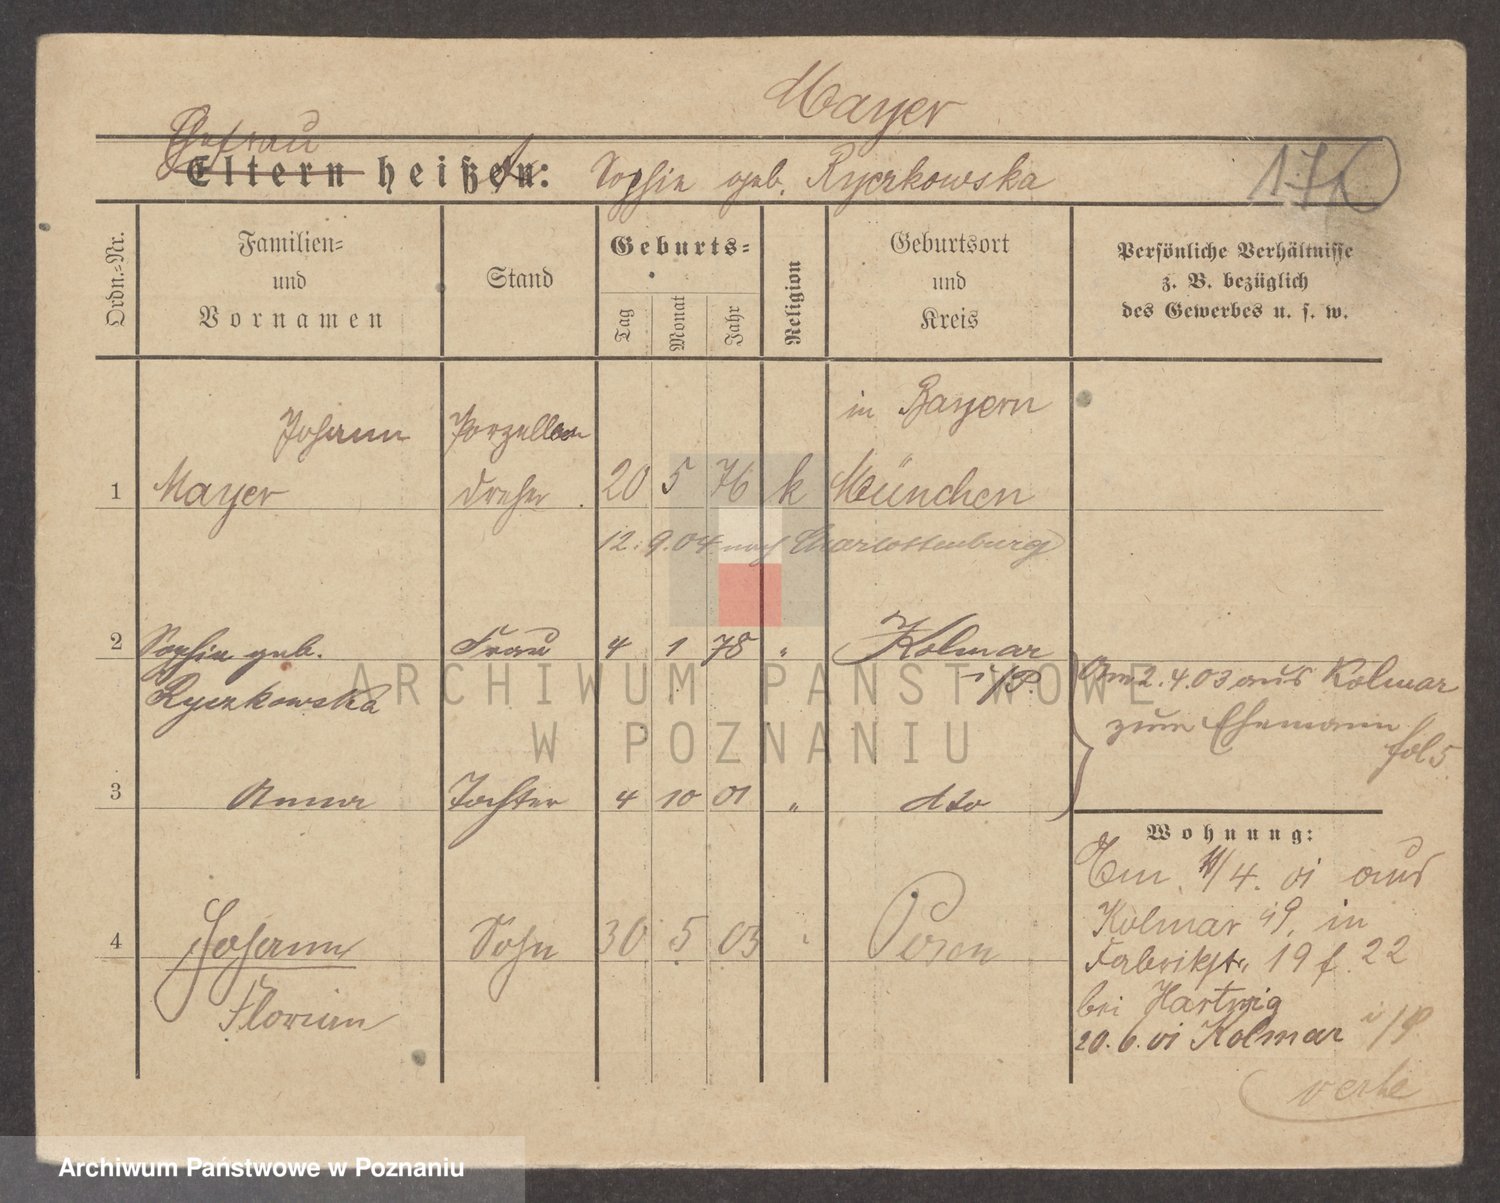 Mayer
Ehefrau
Eltern heißen: Sophie geb. Ryczkowska
176
Ordn.-Nr.
Familien-
und
Vornamen
Stand
Geburts-
Tag
Monat
Jahr
Religion
Geburtsort
und
Kreis
Persönliche Verhältnisse
z. B. bezüglich
des Gewerbes u. s. w.
in Bayern
Johann Porzellan
1 Mayer dreher 20 5 76 k München
12.9.04 nach Charlottenburg
2 Sophie geb. Frau 4 1 78 " Kolmar
Ryczkowska i/P.
Am 2.4.03 aus Kolmar
zum Ehemann
fol 5
3 Anna Tochter 4 10 01 " dto
Wohnung:
4/4. 01 aus
Kolmar 49. in
Fabrikstr. 19 f. 22
bei Hartwig
20.6.01 Kolmar i/P
verte
4 Johann Sohn 30 5 03 " Posen
Florian
ARCHIWUM PAŃSTWOWE
W POZNANIU
Archiwum Państwowe w Poznaniu